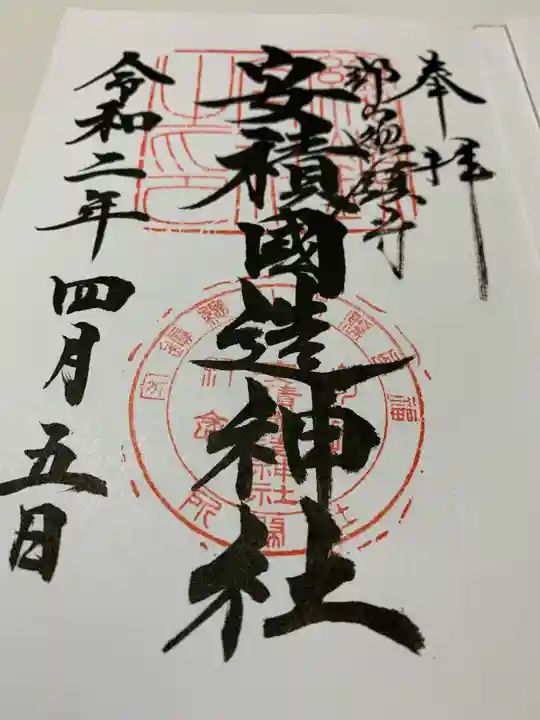 奉拝
郡山総鎮守
安積國造神社
令和二年 四月五日